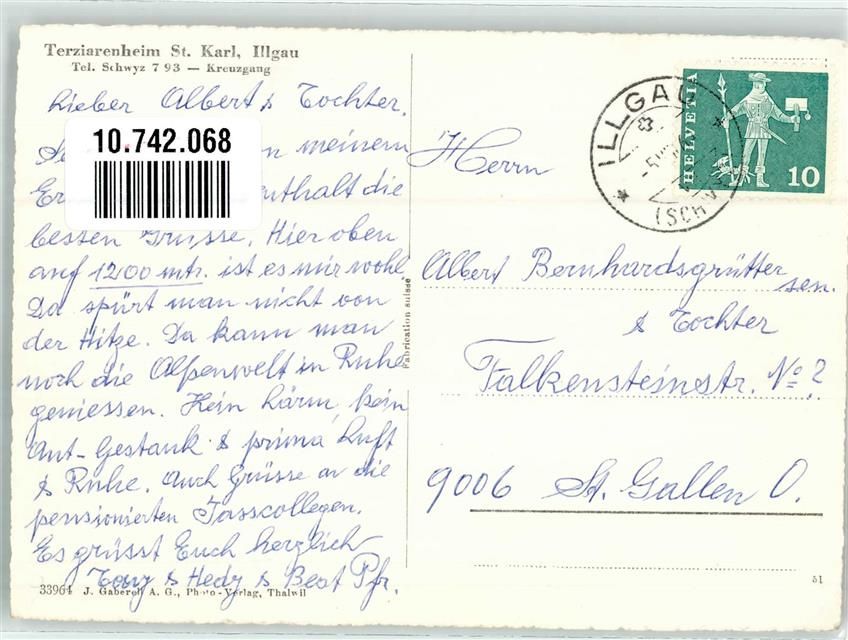 Terziarenheim St. Karl, Illgau
Tel. Schwyz 7 93 — Kreuzgang
Lieber Albert & Tochter.
10.742.068
meinem
die
besten Grüsse. Hier oben
auf 1200 mtr. ist es mir wohl.
Da spürt man nicht von
der Hitze. Da kann man
noch die Alpenwelt in Ruhe
geniessen. Kein Lärm, kein
Aut-Gestank & prima Luft
& Ruhe. Auch Grüsse an die
pensionierten Jasscollegen.
Es grüsst Euch herzlich
Tony & Hedy & Beat Pfr.
33964 J. Gaberell A. G., Photo-Verlag, Thalwil
Fabrication suisse
ILLGAU
(SCHWYZ)
HELVETIA
10
Herrn
Albert Bernhardsgrütter
sen.
& Tochter
Falkensteinstr. No ?
9006 St. Gallen O.
51